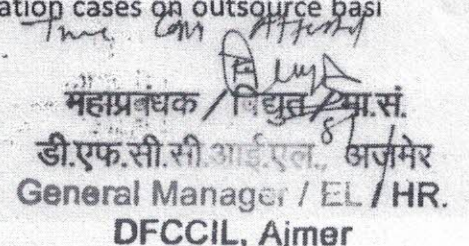 ation cases on outsource basi
True Copy Attested
महाप्रबंधक / विद्युत / मा.सं.
डी.एफ.सी.सी.आई.एल., अजमेर
General Manager / EL / HR.
DFCCIL, Ajmer